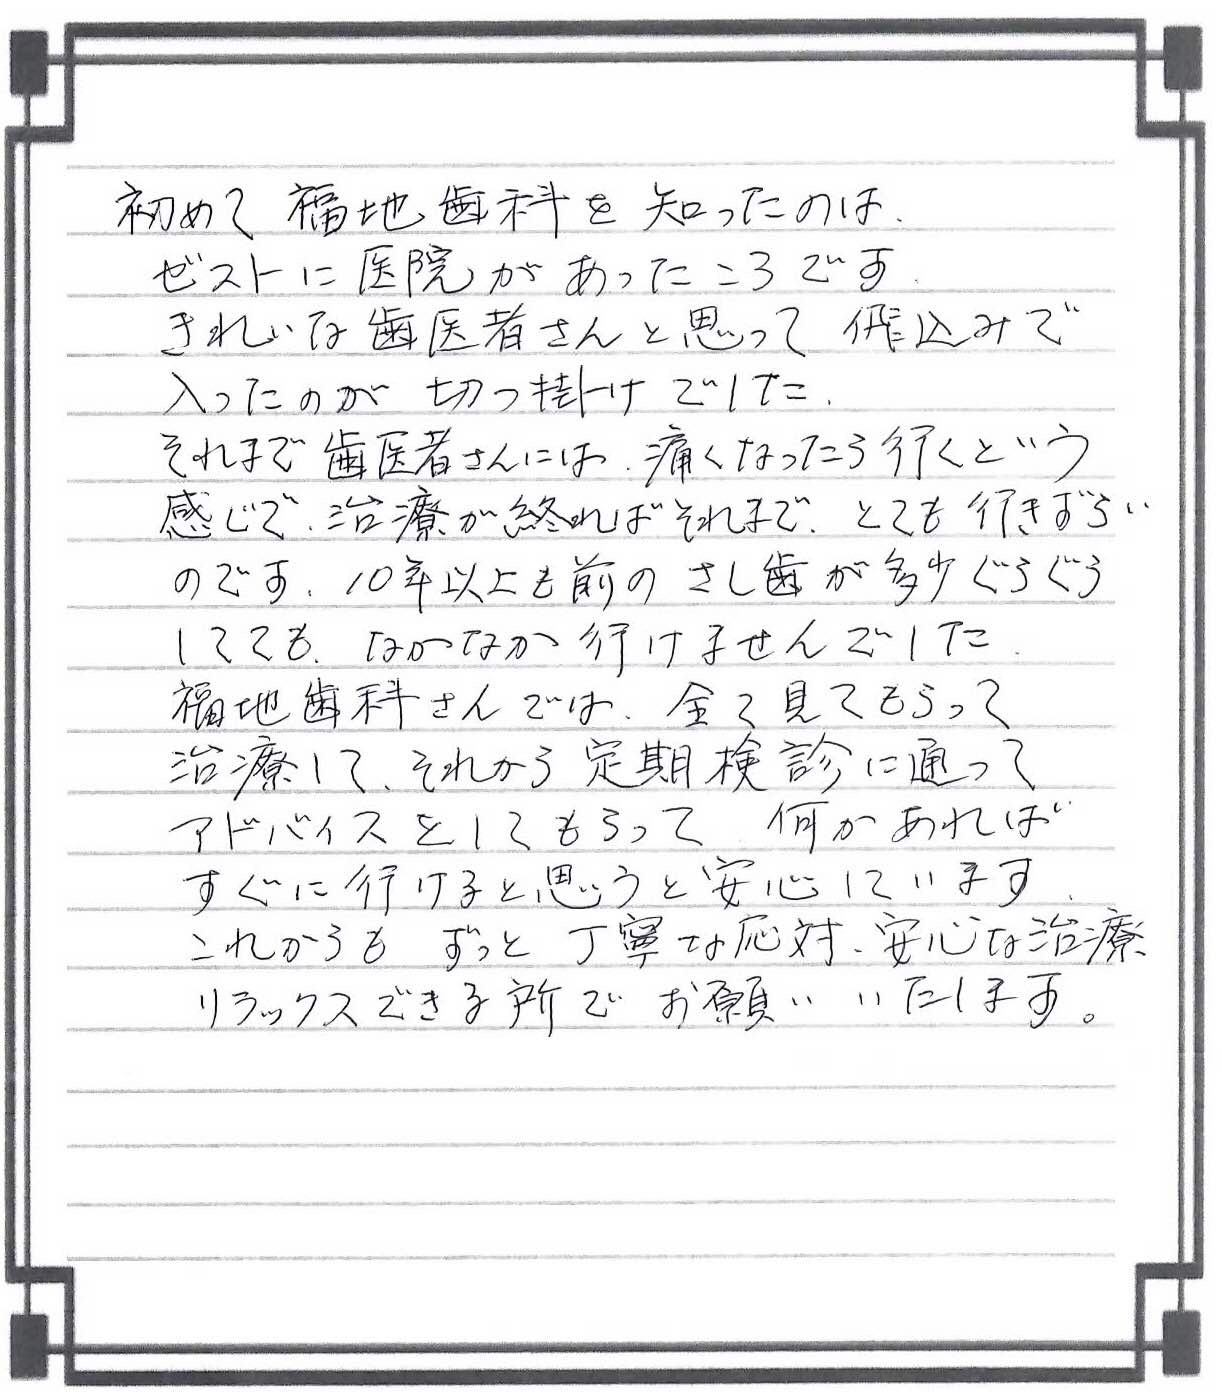 初めて福地歯科を知ったのは、
ゼストに医院があったころです。
きれいな歯医者さんと思って飛込みで
入ったのが切っ掛けでした。
それまで歯医者さんには、痛くなったら行くという
感じで、治療が終ればそれまで、とても行きずらい
のです。10年以上も前のさし歯が多少ぐらぐら
してても、なかなか行けませんでした。
福地歯科さんでは、全て見てもらって
治療して、それから定期検診に通って
アドバイスをしてもらって、何かあれば
すぐに行けると思うと安心しています。
これからもずっと丁寧な応対、安心な治療
リラックスできる所でお願いいたします。